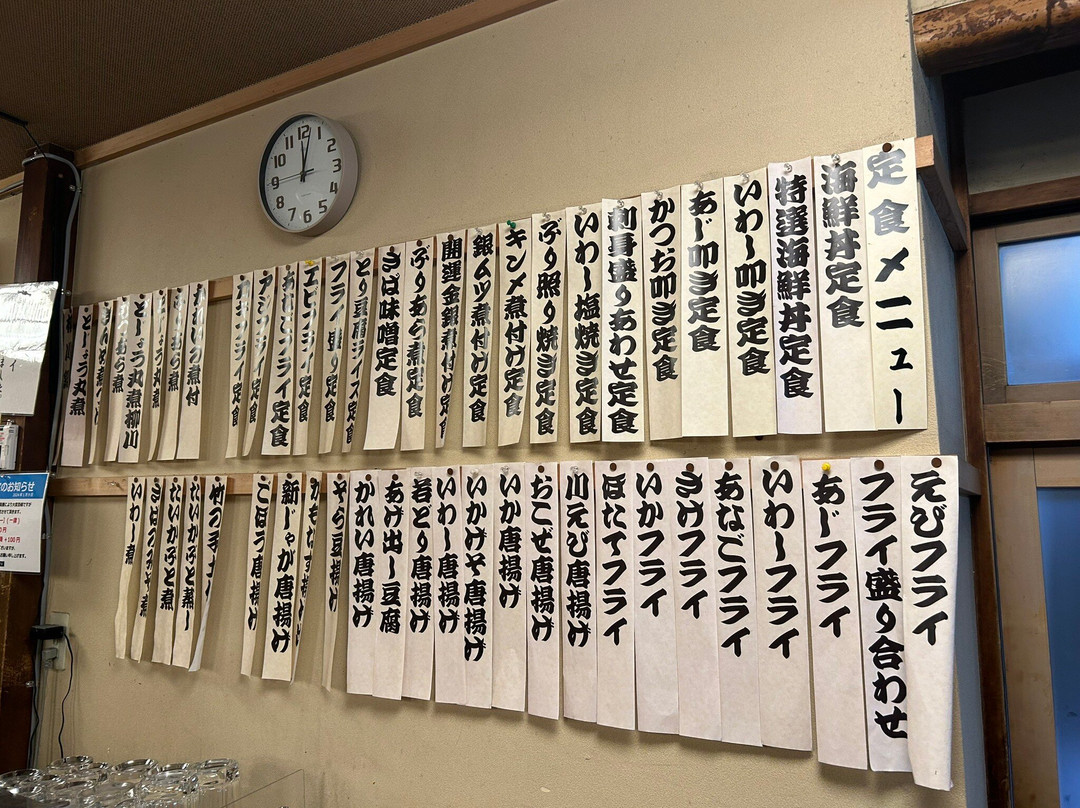 定食メニュー
海鮮丼定食
特選海鮮丼定食
いわし叩き定食
あじ叩き定食
かつお叩き定食
刺身盛りあわせ定食
いわし塩焼き定食
ぶり照り焼き定食
キンメ煮付け定食
銀ムツ煮付け定食
開運金銀煮付け定食
ぶりあら煮定食
さば味噌定食
とり豆腐ライス定食
フライ盛り定食
エビフライ定食
アジフライ定食
カキフライ定食
どじょう丸煮柳川
どじょう丸煮
えびフライ
フライ盛り合わせ
あじフライ
いわしフライ
あなごフライ
さけフライ
いかフライ
ほたてフライ
川えび唐揚げ
おこぜ唐揚げ
いか唐揚げ
いかげそ唐揚げ
いわし唐揚げ
若どり唐揚げ
あげ出し豆腐
かれい唐揚げ
そら豆唐揚げ
新じゃが唐揚げ
ごぼう唐揚げ
たいかぶと蒸し
たいかぶと煮
さばみそ煮
いわし煮
12
1
2
3
4
5
6
7
8
9
10
11
のお知らせ